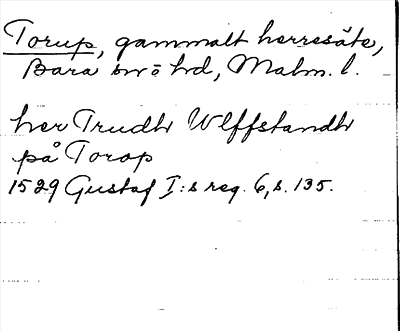 Torup, gammalt herresäte,
Bara hd, Malm. l.
her Trudh Wlffstandh
på Torop
1529 Gustaf I:s reg. 6, s. 135.